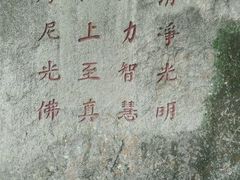 清淨光明
力智慧
上至真
尼光佛